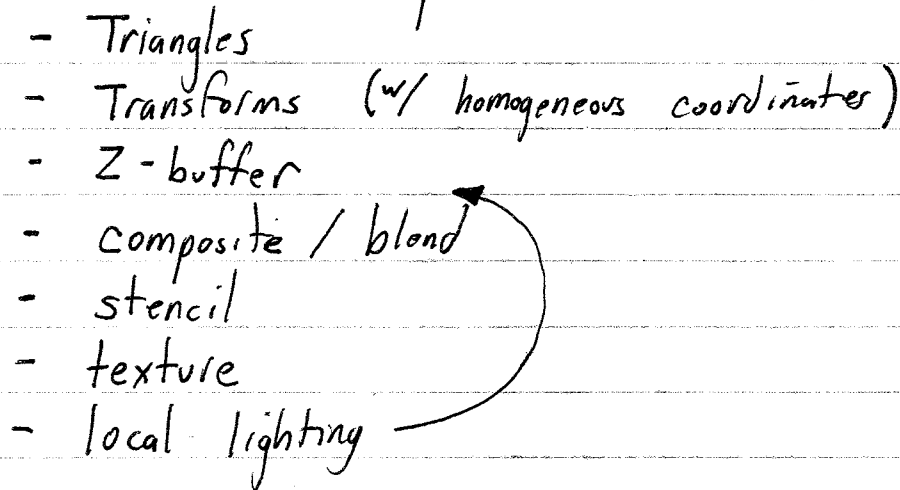 - Triangles
- Transforms (w/ homogeneous coordinates)
- Z-buffer
- composite / blend
- stencil
- texture
- local lighting